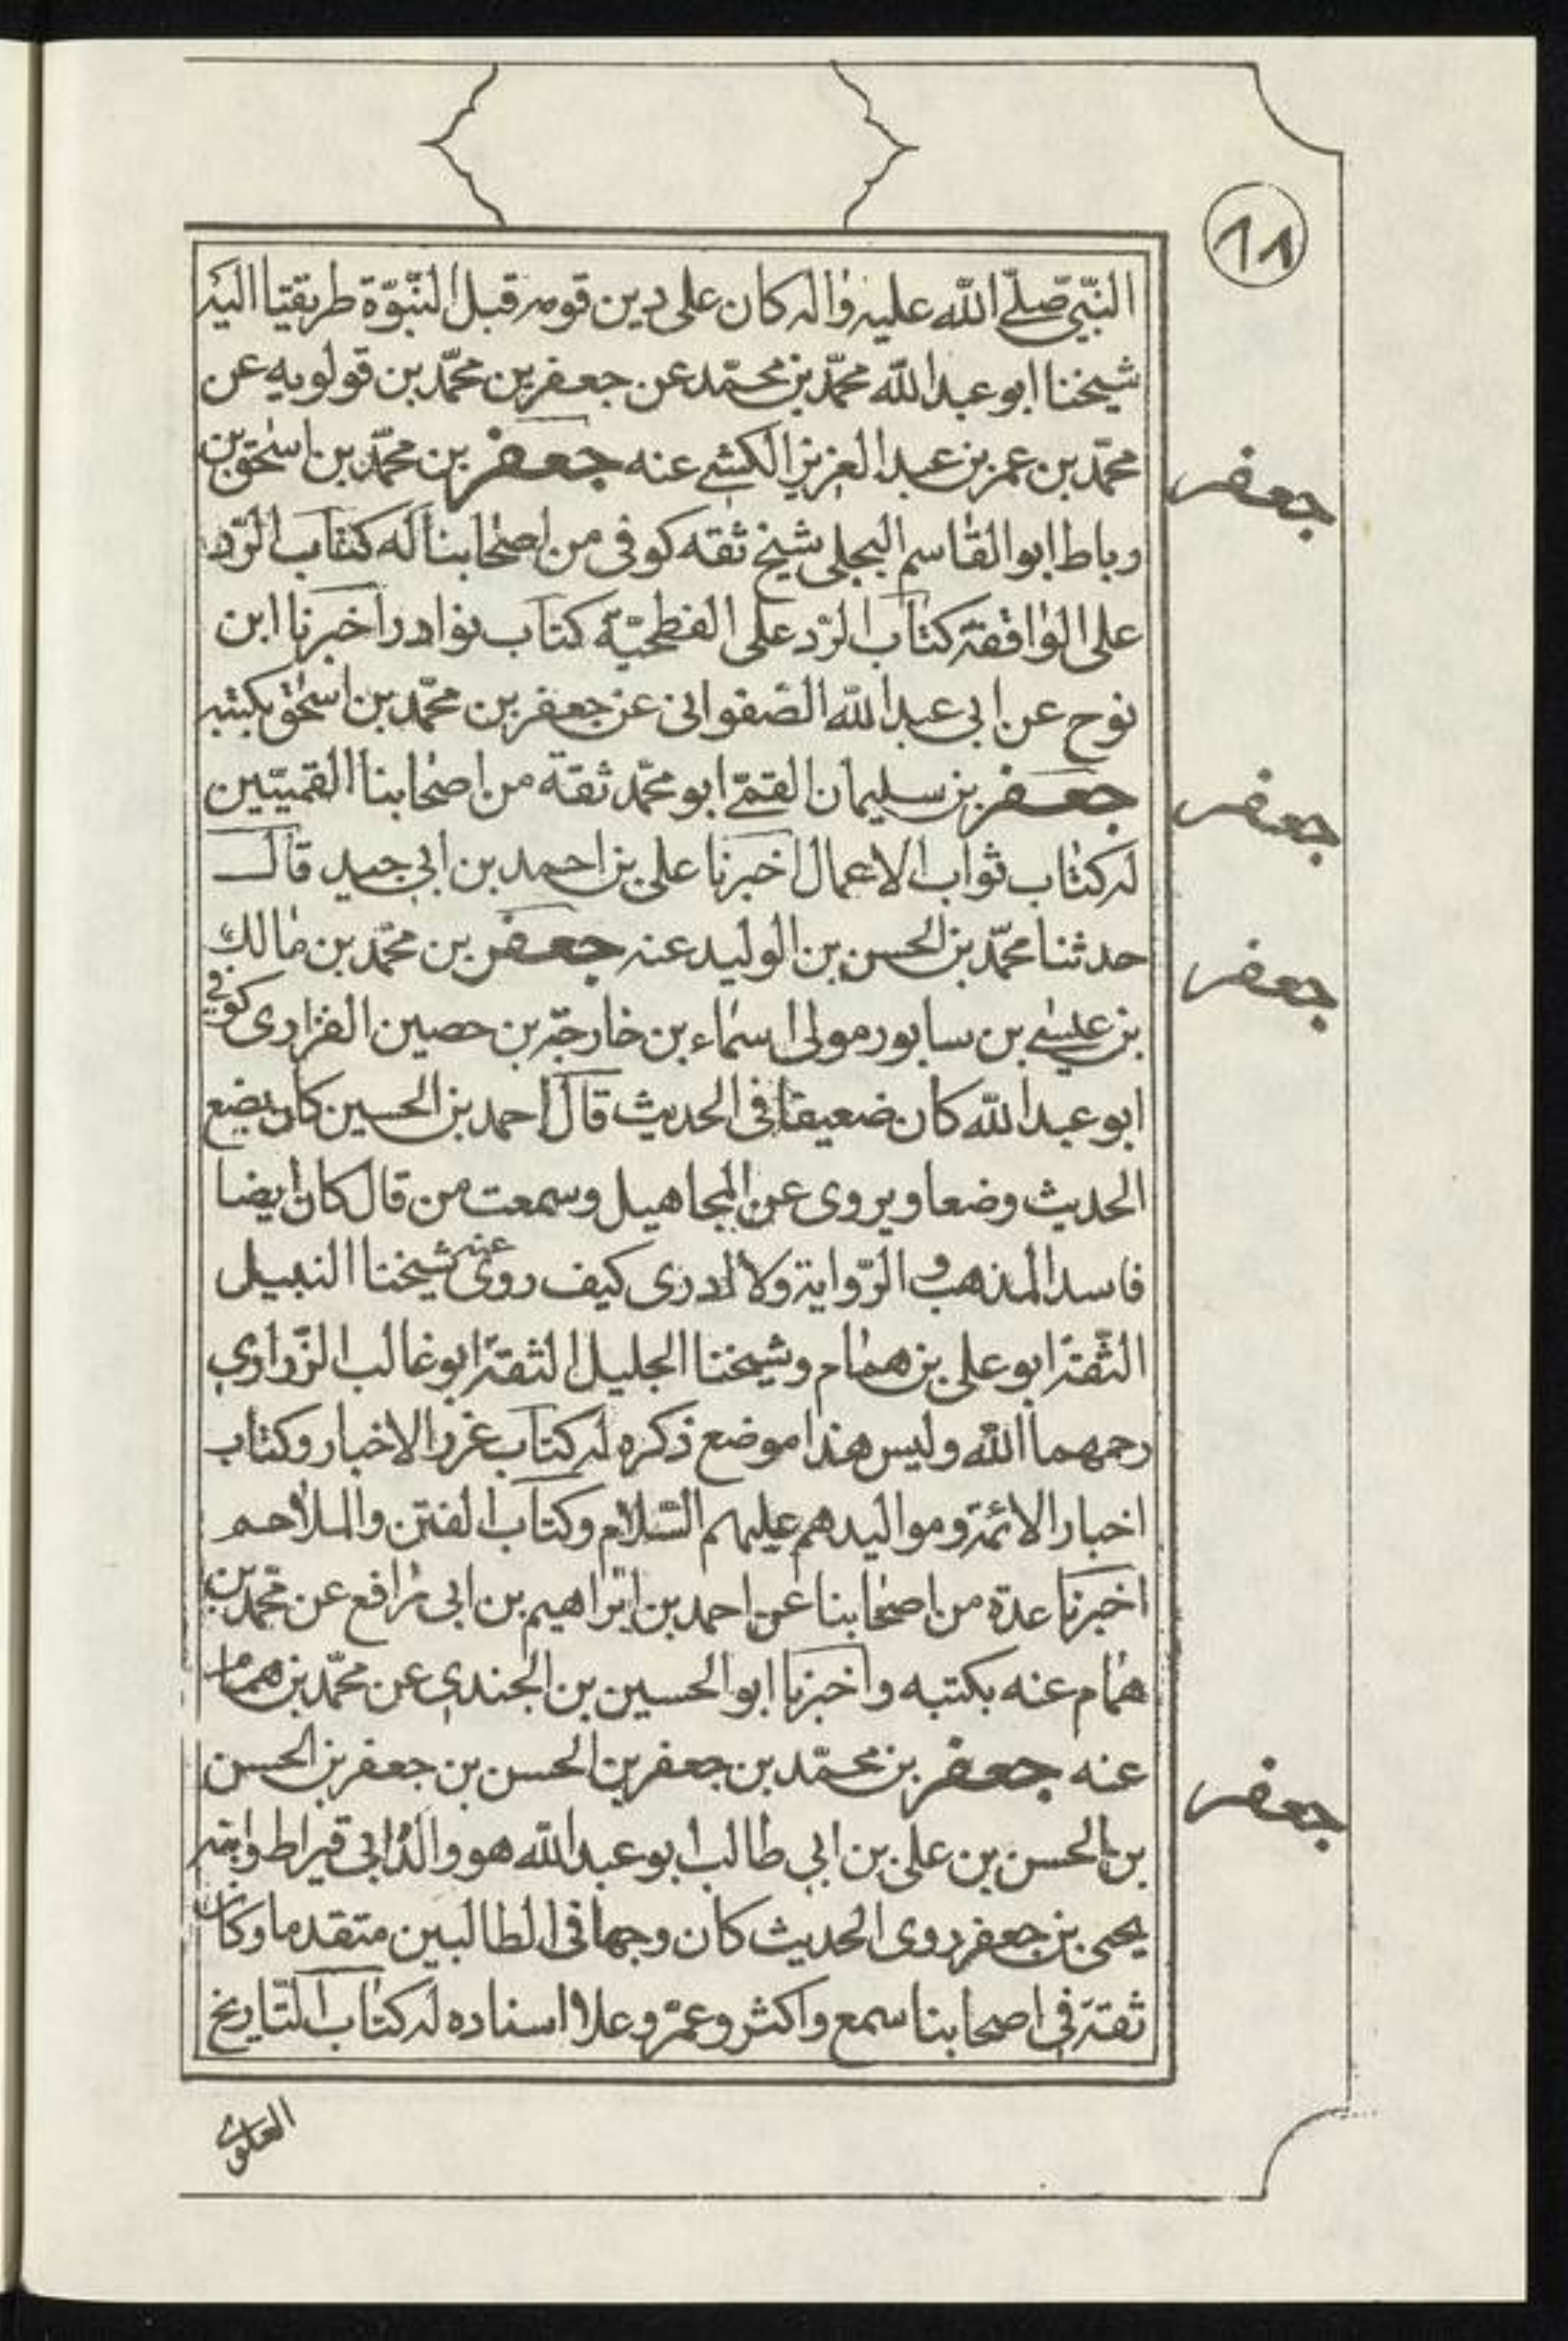 ٨٨
النبي صلى الله عليه واله كان على دين قومه قبل النبوة طريقنا اليه
شيخنا ابو عبد الله محمد بن محمد عن جعفر بن محمد بن قولويه عن
محمد بن عمر بن عبد العزيز الكشي عنه جعفر بن محمد بن اسحق بن
جعفر
رباط ابو القاسم البجلي شيخ ثقه كوفى من اصحابنا له كتاب الرد
على الواقفة كتاب الرد على الفطحية كتاب نوادر اخبرنا ابن
نوح عن ابى عبد الله الصفوانى عن جعفر بن محمد بن اسحق بكتبه
جعفر بن سليمان القمى ابو محمد ثقة من اصحابنا القميين
جعفر
له كتاب ثواب الاعمال اخبرنا على بن احمد بن ابى جيد قال
حدثنا محمد بن الحسن بن الوليد عنه جعفر بن محمد بن مالك
جعفر
بن عيسى بن سابور مولى اسماء بن خارجة بن حصين الفزارى كوفي
ابو عبد الله كان ضعيفا فى الحديث قال احمد بن الحسين كان يضع
الحديث وضعا ويروى عن المجاهيل وسمعت من قال كان ايضا
فاسد المذهب و الرواية ولا ادرى كيف روى عنه شيخنا النبيل
الثقة ابو على بن همام وشيخنا الجليل الثقة ابو غالب الزراري
رحمهما الله وليس هذا موضع ذكره له كتاب غرر الاخبار وكتاب
اخبار الائمة ومواليدهم عليهم السلام وكتاب الفتن والملاحم
اخبرنا عدة من اصحابنا عن احمد بن ابراهيم بن ابى رافع عن محمد بن
همام عنه بكتبه واخبرنا ابو الحسين بن الجندي عن محمد بن همام
عنه جعفر بن محمد بن جعفر بن الحسن بن جعفر بن الحسن
جعفر
بن الحسن بن على بن ابي طالب ابو عبد الله هو والد ابى قيراط وابنه
يحيى بن جعفر روى الحديث كان وجها فى الطالبين متقدما وكان
ثقة في اصحابنا سمع واكثر وعمر وعلا اسناده له كتاب التاريخ
العلوي